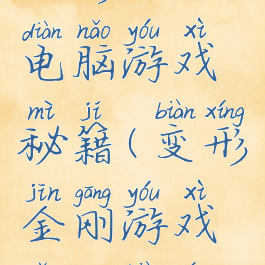 diàn nǎo yóu xì
电脑游戏
mì jí biàn xíng
秘籍(变形
jīn gāng yóu xì
金刚游戏